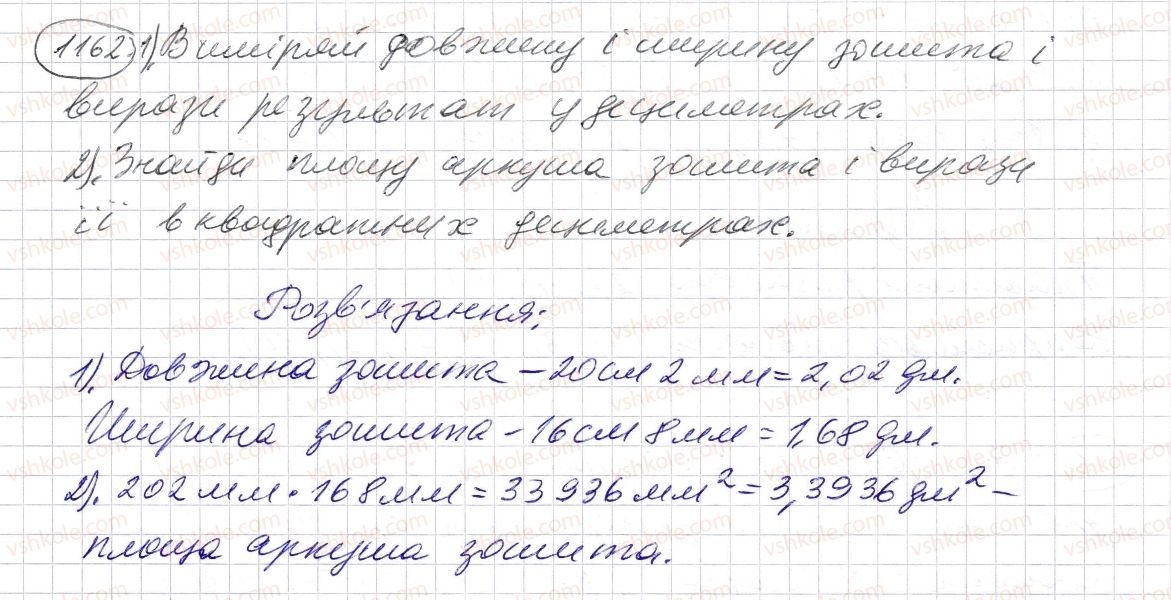 1162) 1). Виміряй довжину і ширину зошита і
вирази результат у дециметрах.
2). Знайди площу аркуша зошита і вирази
її в квадратних дециметрах.
Розв'язання:
1). Довжина зошита – 20см 2 мм = 2,02 дм.
Ширина зошита – 16см 8мм = 1,68 дм.
2). 202 мм · 168мм = 33936 мм² = 3,3936 дм² –
площа аркуша зошита.